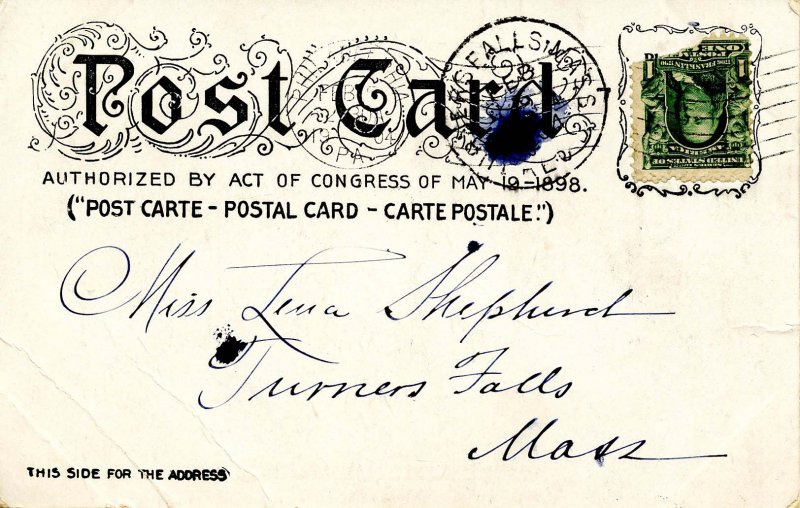 Post Card
AUTHORIZED BY ACT OF CONGRESS OF MAY 19-1898.
("POST CARTE - POSTAL CARD - CARTE POSTALE.")
FALLS, MASS
FEB
PA
ONE
1 1
UNITED STATES OF
AMERICA
Miss Lena Shepherd
Turners Falls
Mass
THIS SIDE FOR THE ADDRESS